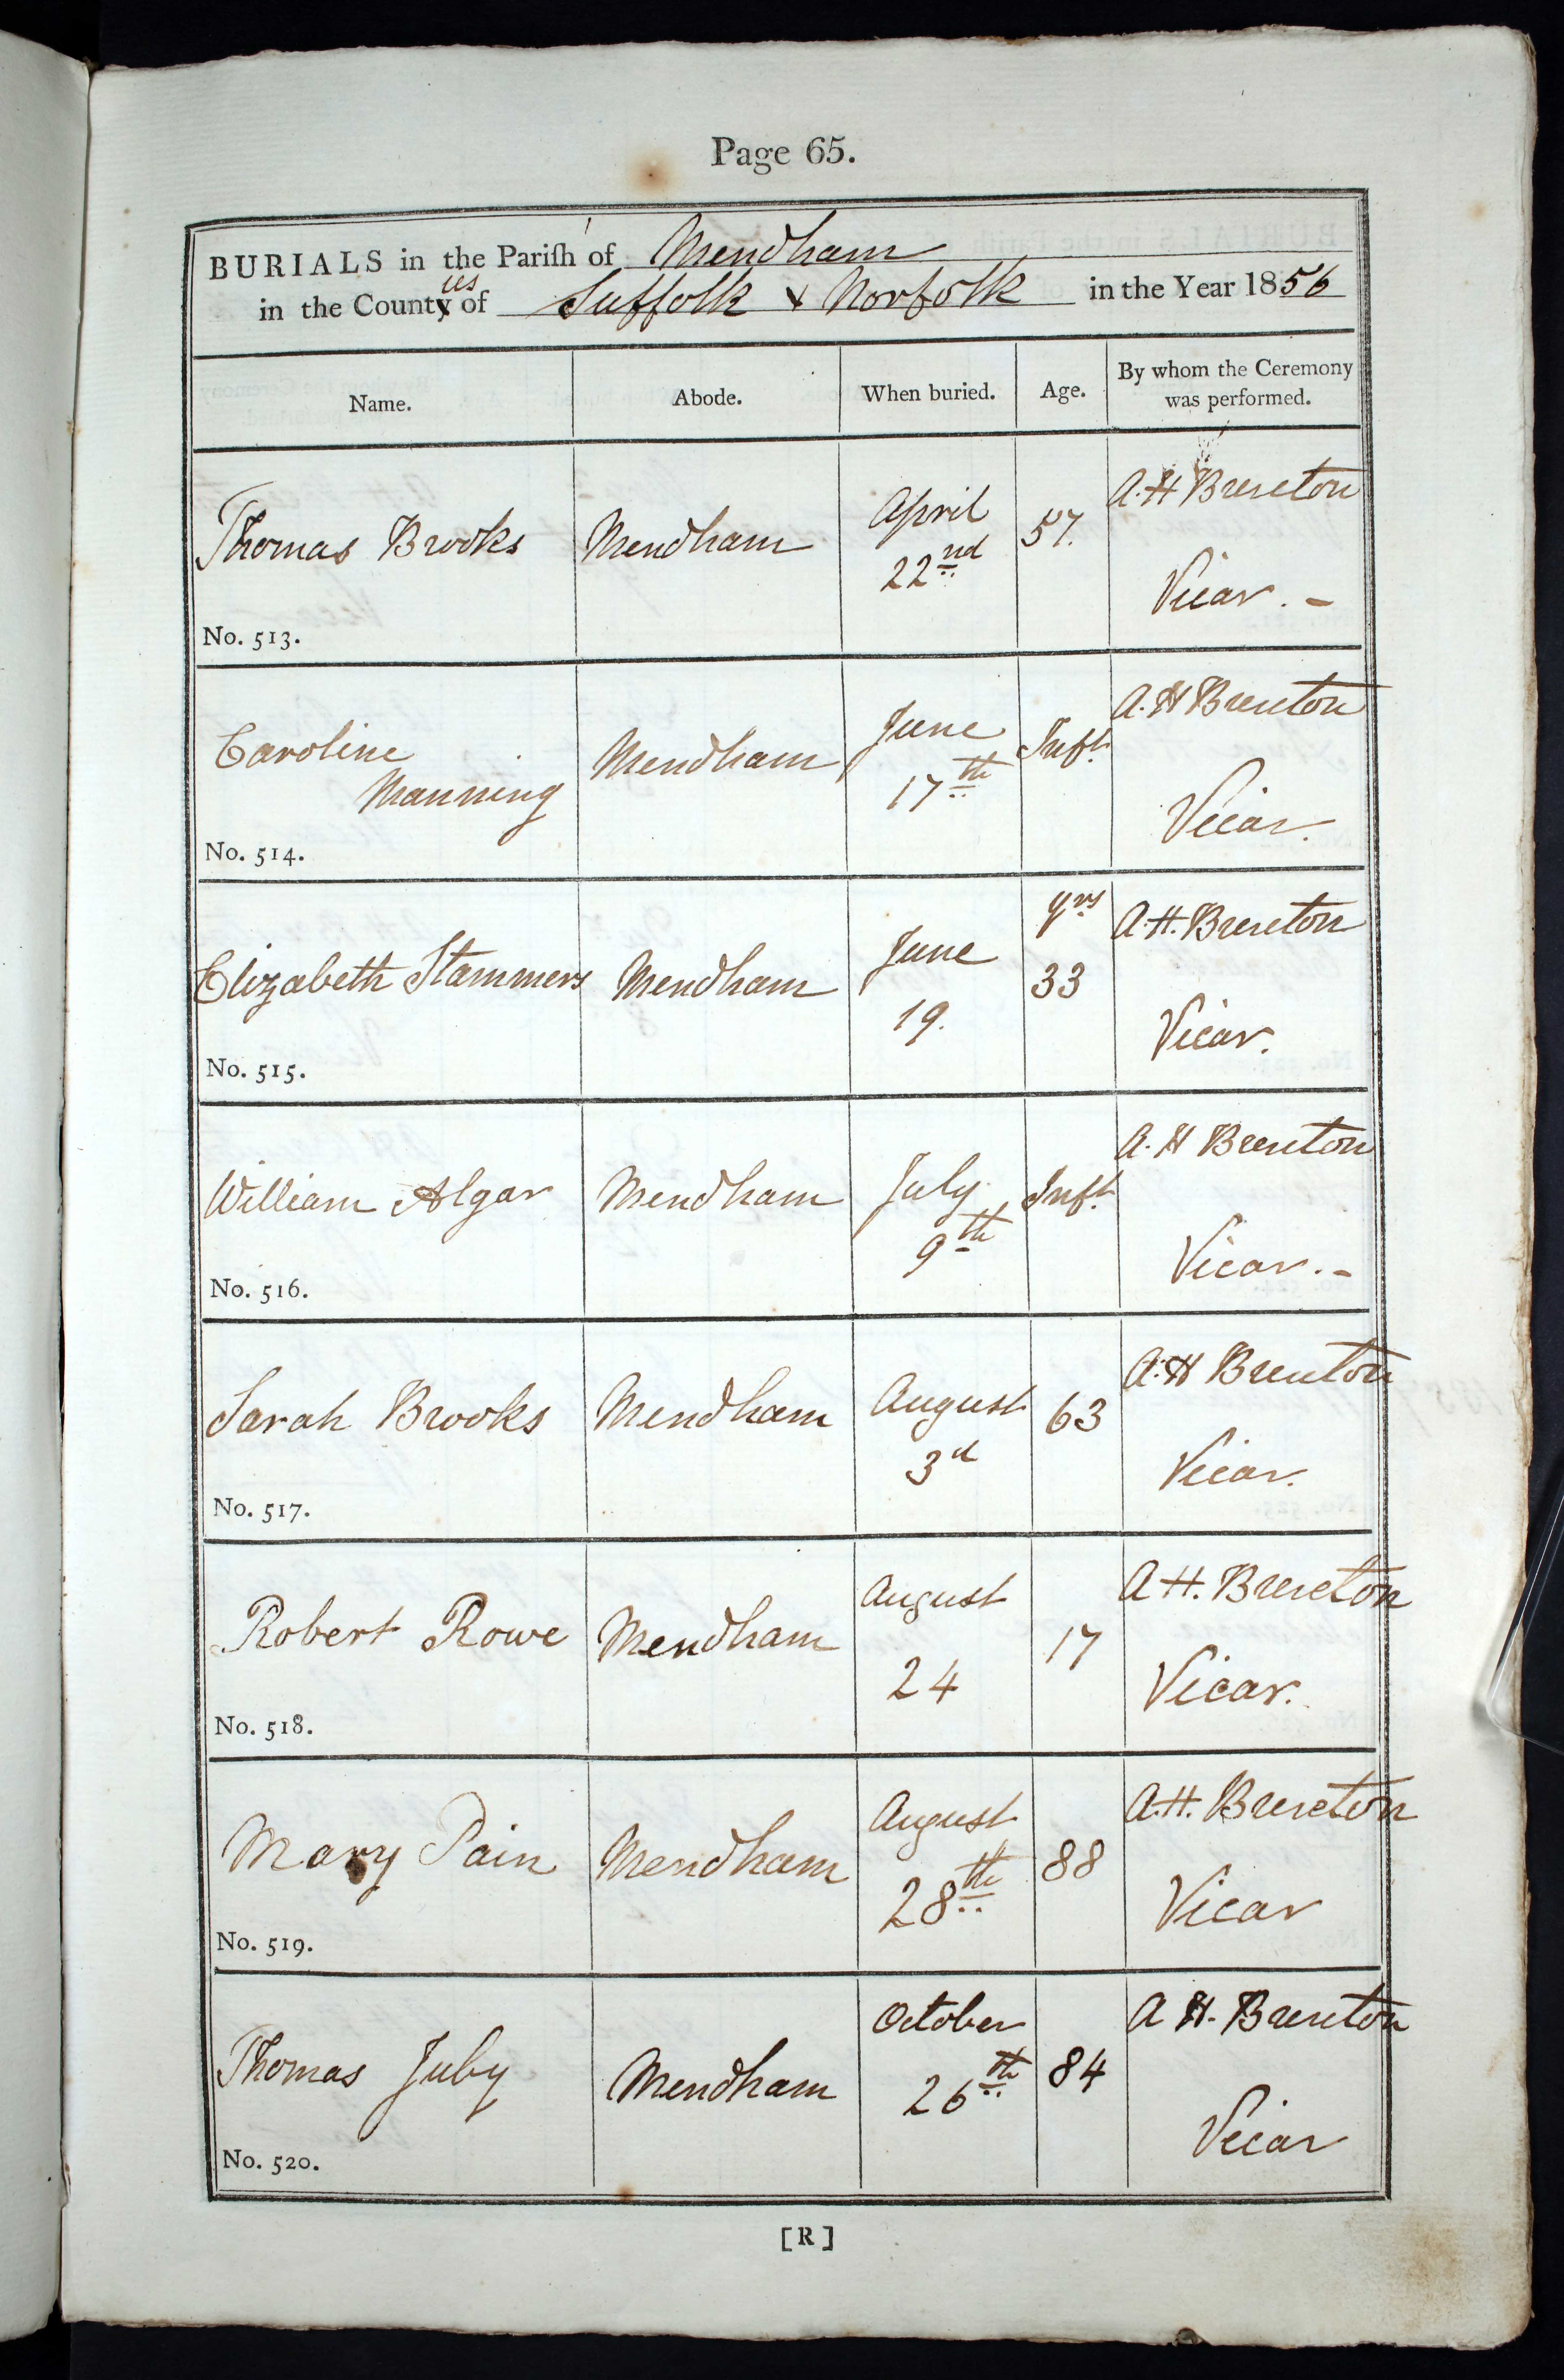 Page 65.
BURIALS in the Pariſh of Mendham
in the Counties of Suffolk & Norfolk in the Year 1856
Name. Abode. When buried. Age. By whom the Ceremony was performed.
Thomas Brooks Mendham April 22nd 57. A. H Brereton Vicar. -
No. 513.
Caroline Manning Mendham June 17th Inft. A. H Brereton Vicar.
No. 514.
Elizabeth Stammers Mendham June 19. yrs 33 A. H. Brereton Vicar.
No. 515.
William Algar Mendham July 9th Inft. A. H Brereton Vicar. -
No. 516.
Sarah Brooks Mendham August 3d 63 A. H Brereton Vicar.
No. 517.
Robert Rowe Mendham August 24 17 A H. Brereton Vicar.
No. 518.
Mary Pain Mendham August 28th 88 A. H. Brereton Vicar
No. 519.
Thomas Juby Mendham October 26th 84 A H. Brereton Vicar
No. 520.
[R]